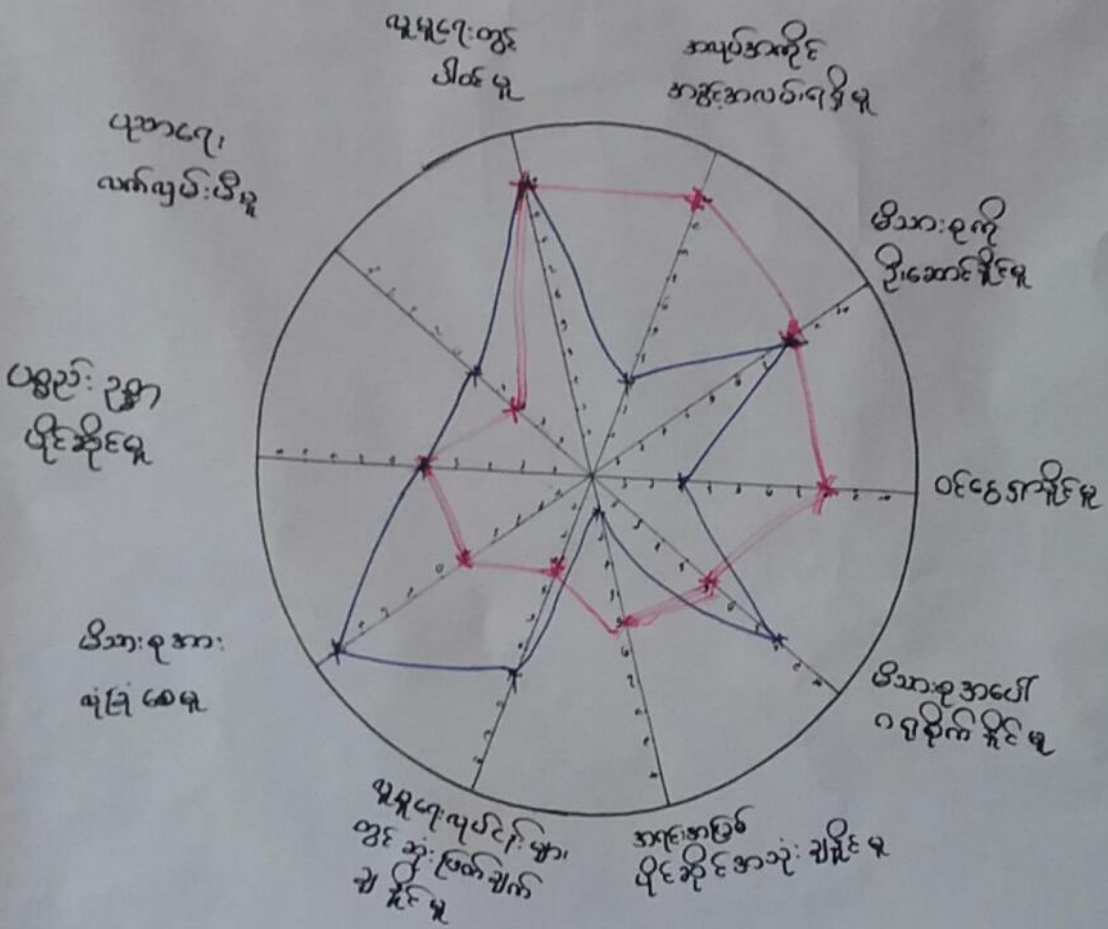 လူမှုရေးတွင်
ပါဝင်မှု
အလုပ်အကိုင်
အခွင့်အလမ်းရရှိမှု
မိသားစုကို
ဦးဆောင်နိုင်မှု
ဝင်ငွေရှာနိုင်မှု
မိသားစုအပေါ်
ဂရုစိုက်နိုင်မှု
အရင်းအမြစ်
ပိုင်ဆိုင်အသုံးချနိုင်မှု
လူမှုရေးလုပ်ငန်းများ
တွင် ဆုံးဖြတ်ချက်
ချနိုင်မှု
မိသားစုအား
လုံခြုံစေမှု
ပစ္စည်းဥစ္စာ
ပိုင်ဆိုင်မှု
ပညာရေး
လက်လှမ်းမီမှု